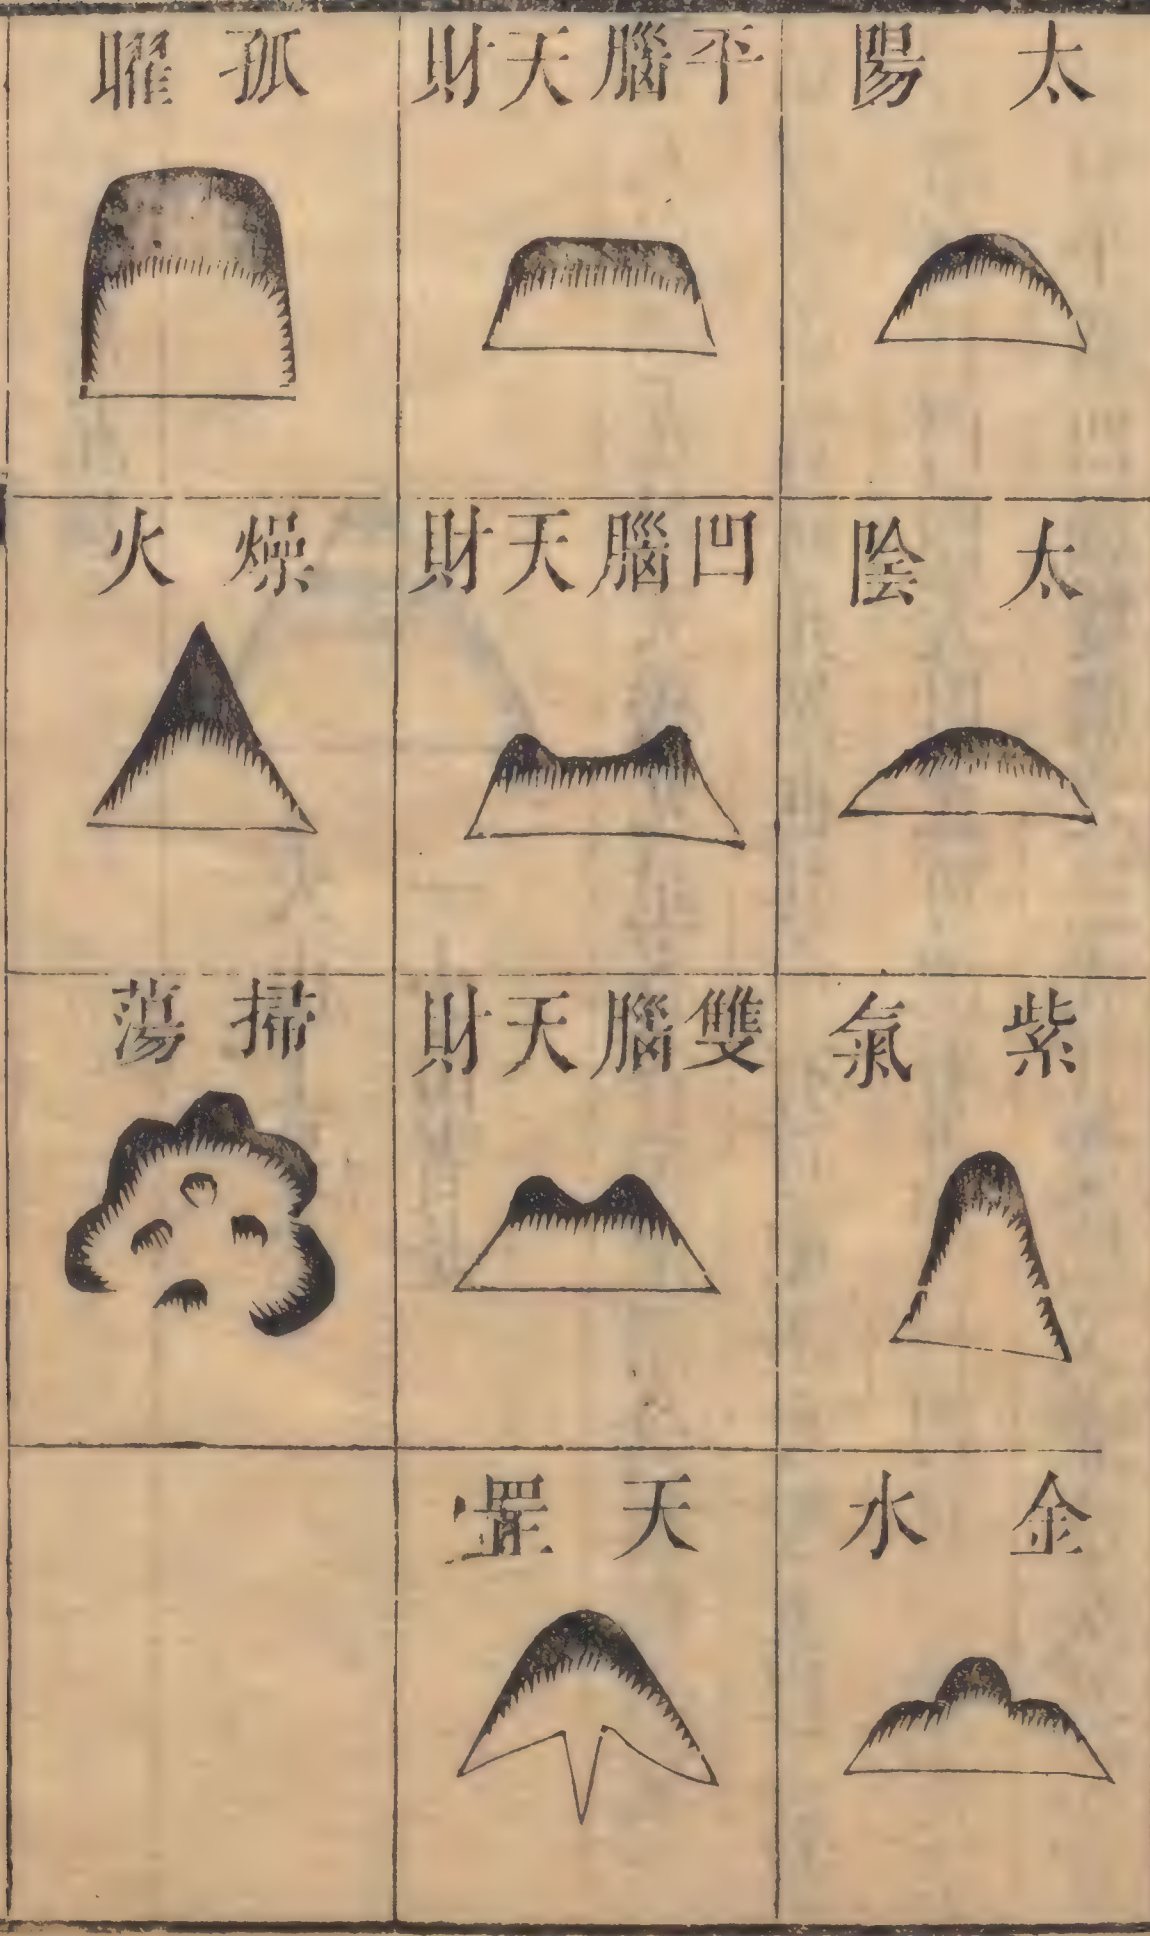 太陽
太陰
紫氣
金水
平腦天財
凹腦天財
雙腦天財
天罡
孤曜
燥火
掃蕩